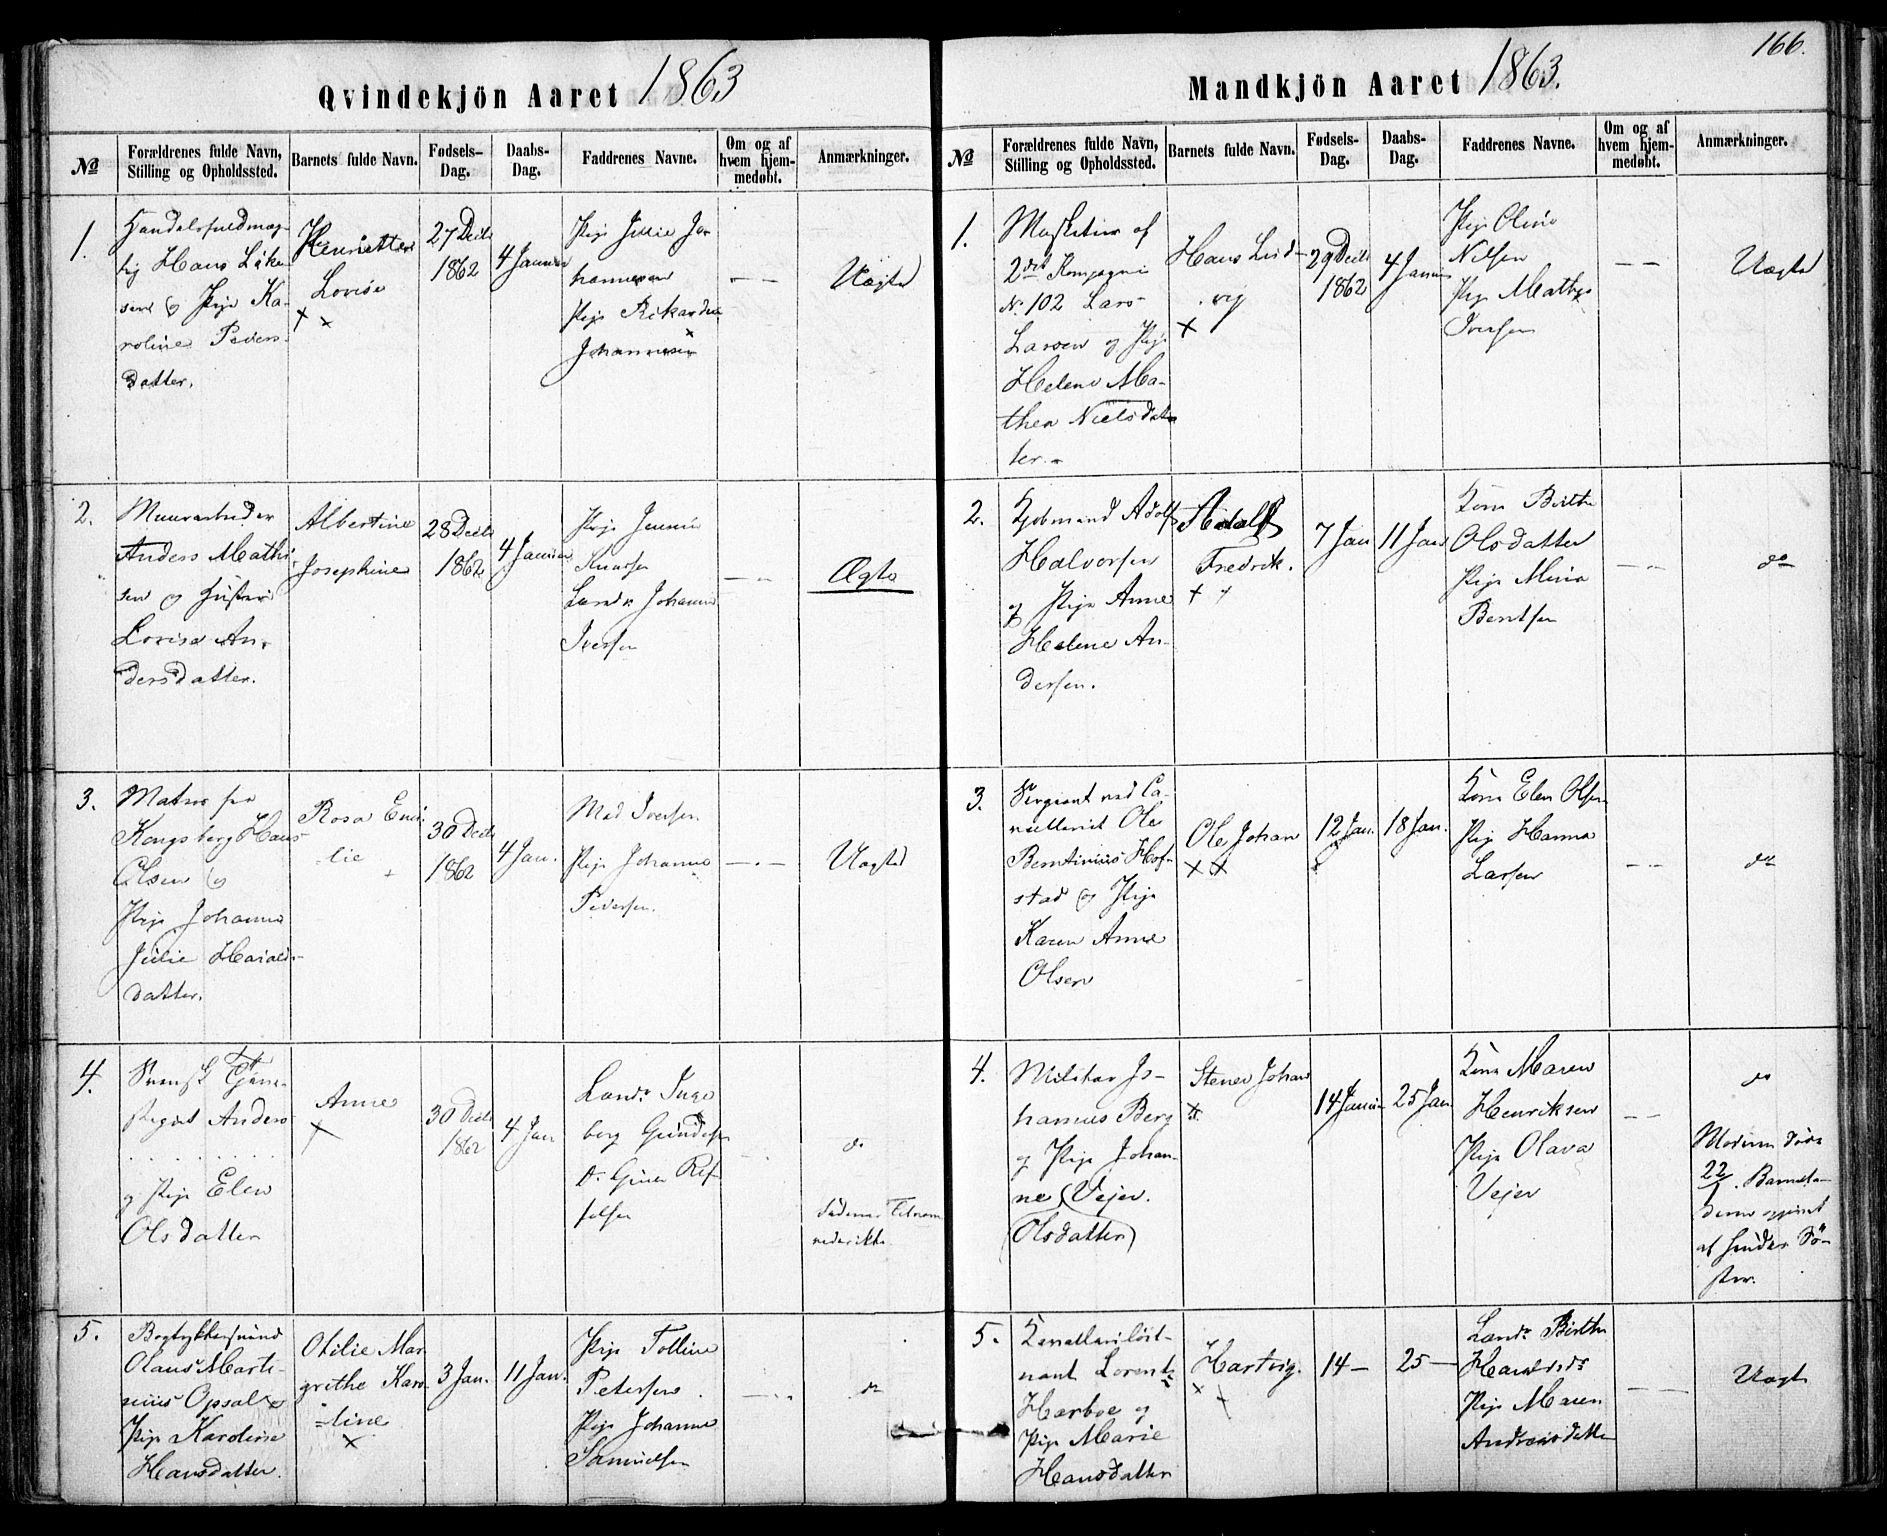 166.
Qvindekjön Aaret 1863
No
Forældrenes fulde Navn, Stilling og Opholdssted.
Barnets fulde Navn.
Fødsels-Dag.
Daabs-Dag.
Faddrenes Navne.
Om og af hvem hjem-medøbt.
Anmærkninger.
1.
Handelsfuldmæg-
tig Hans Lske-
sen og Pige Ka-
roline Peders-
datter.
Henriette
Lovise
27 Decb
1862
4 Januar
Pige Julie Jo-
hannesen
Pige Rikarda
Johannesen
Uægte
2.
Muurarbeider
Anders Mathi-
sen og Hustru
Lovise An-
dersdatter.
Albertine
Josephine
28 Decb
1862
4 Januar
Pige Jennie
Knutsen
Landv. Johannes
Iversen
Ægte
3.
Matros fra
Kongsberg Hans
Olsen og
Pige Johanne
Julie Harals-
datter.
Rosa Emi-
lie
30 Decb
1862
4 Jan.
Mad Iversen
Pige Johanne
Pedersen.
Uægte
4.
Svensk
Anders
og Pige Elen
Olsdatter
Anne
30 Decb
1862
4 Jan
Landv. Inge-
borg
do
5.
Bogtrykkersvend
Olaus Marti-
nius Opsal og
Pige Karoline
Hansdatter.
Otilie Mar-
grethe Karo-
line
3 Jan.
11 Jan.
Pige Tolline
Petersen
Pige Johanne
Samuelsen
do
Mandkjön Aaret 1863.
No
Forældrenes fulde Navn, Stilling og Opholdssted.
Barnets fulde Navn.
Fødsels-Dag.
Daabs-Dag.
Faddrenes Navne.
Om og af hvem hjem-medøbt.
Anmærkninger.
1.
Musketeer af
2det Kompagni
No. 102 Lars
Larsen og Pige
Helene Ma-
thea Nielsdat-
ter.
Hans Lud-
vig
29 Decb
1862
4 Januar
Pige Oline
Nilsen
Pige Mathea
Iversen
Uægte
2.
Kjøbmand Adolf
Halvorsen
og Pige Anne
Helene An-
dersen.
Adolf
Fredrik.
7 Jan
11 Jan
Kone Birthe
Olsdatter
Pige Mina
Bentsen
do
3.
Sergeant ved Ca-
valleriet Ole
Berntinius Hof-
stad og Pige
Karen Anne
Olsen
Ole Johan
12 Jan.
18 Jan.
Kone Elen Olsen
Pige Hanna
Larsen
do
4.
Militær Jo-
hannes Berg
og Pige Johan-
ne Vejer.
(Olsdatter)
Stener Johan
14 Januar
25 Jan.
Kone Maren
Henriksen
Pige Olava
Vejer
do
Moderen døde
22/1. Barnet
af hendes Sø-
ster.
5.
Kavalleriløit-
nant Lorentz
Harboe og
Pige Marie
Hansdatter
Hartvig.
14 —
25 —
Landv. Birthe
Pige Maren
Andreasdatter
Uægte